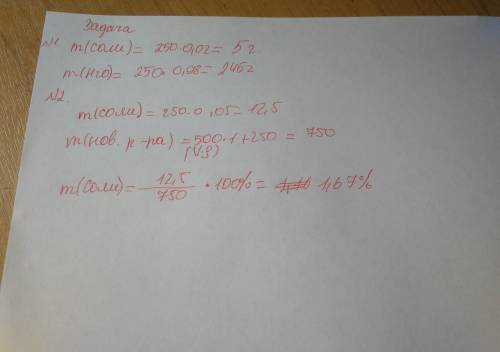 Задача
№1 m(соли) = 250·0,02 = 5 г
m(H2O) = 250·0,98 = 245 г
№2.
m(соли) = 250·0,05 = 12,5
m(нов. р-ра) = 500·1 + 250 = 750
(V·ρ)
m(соли) = 12,5/750 · 100% = 1,67%